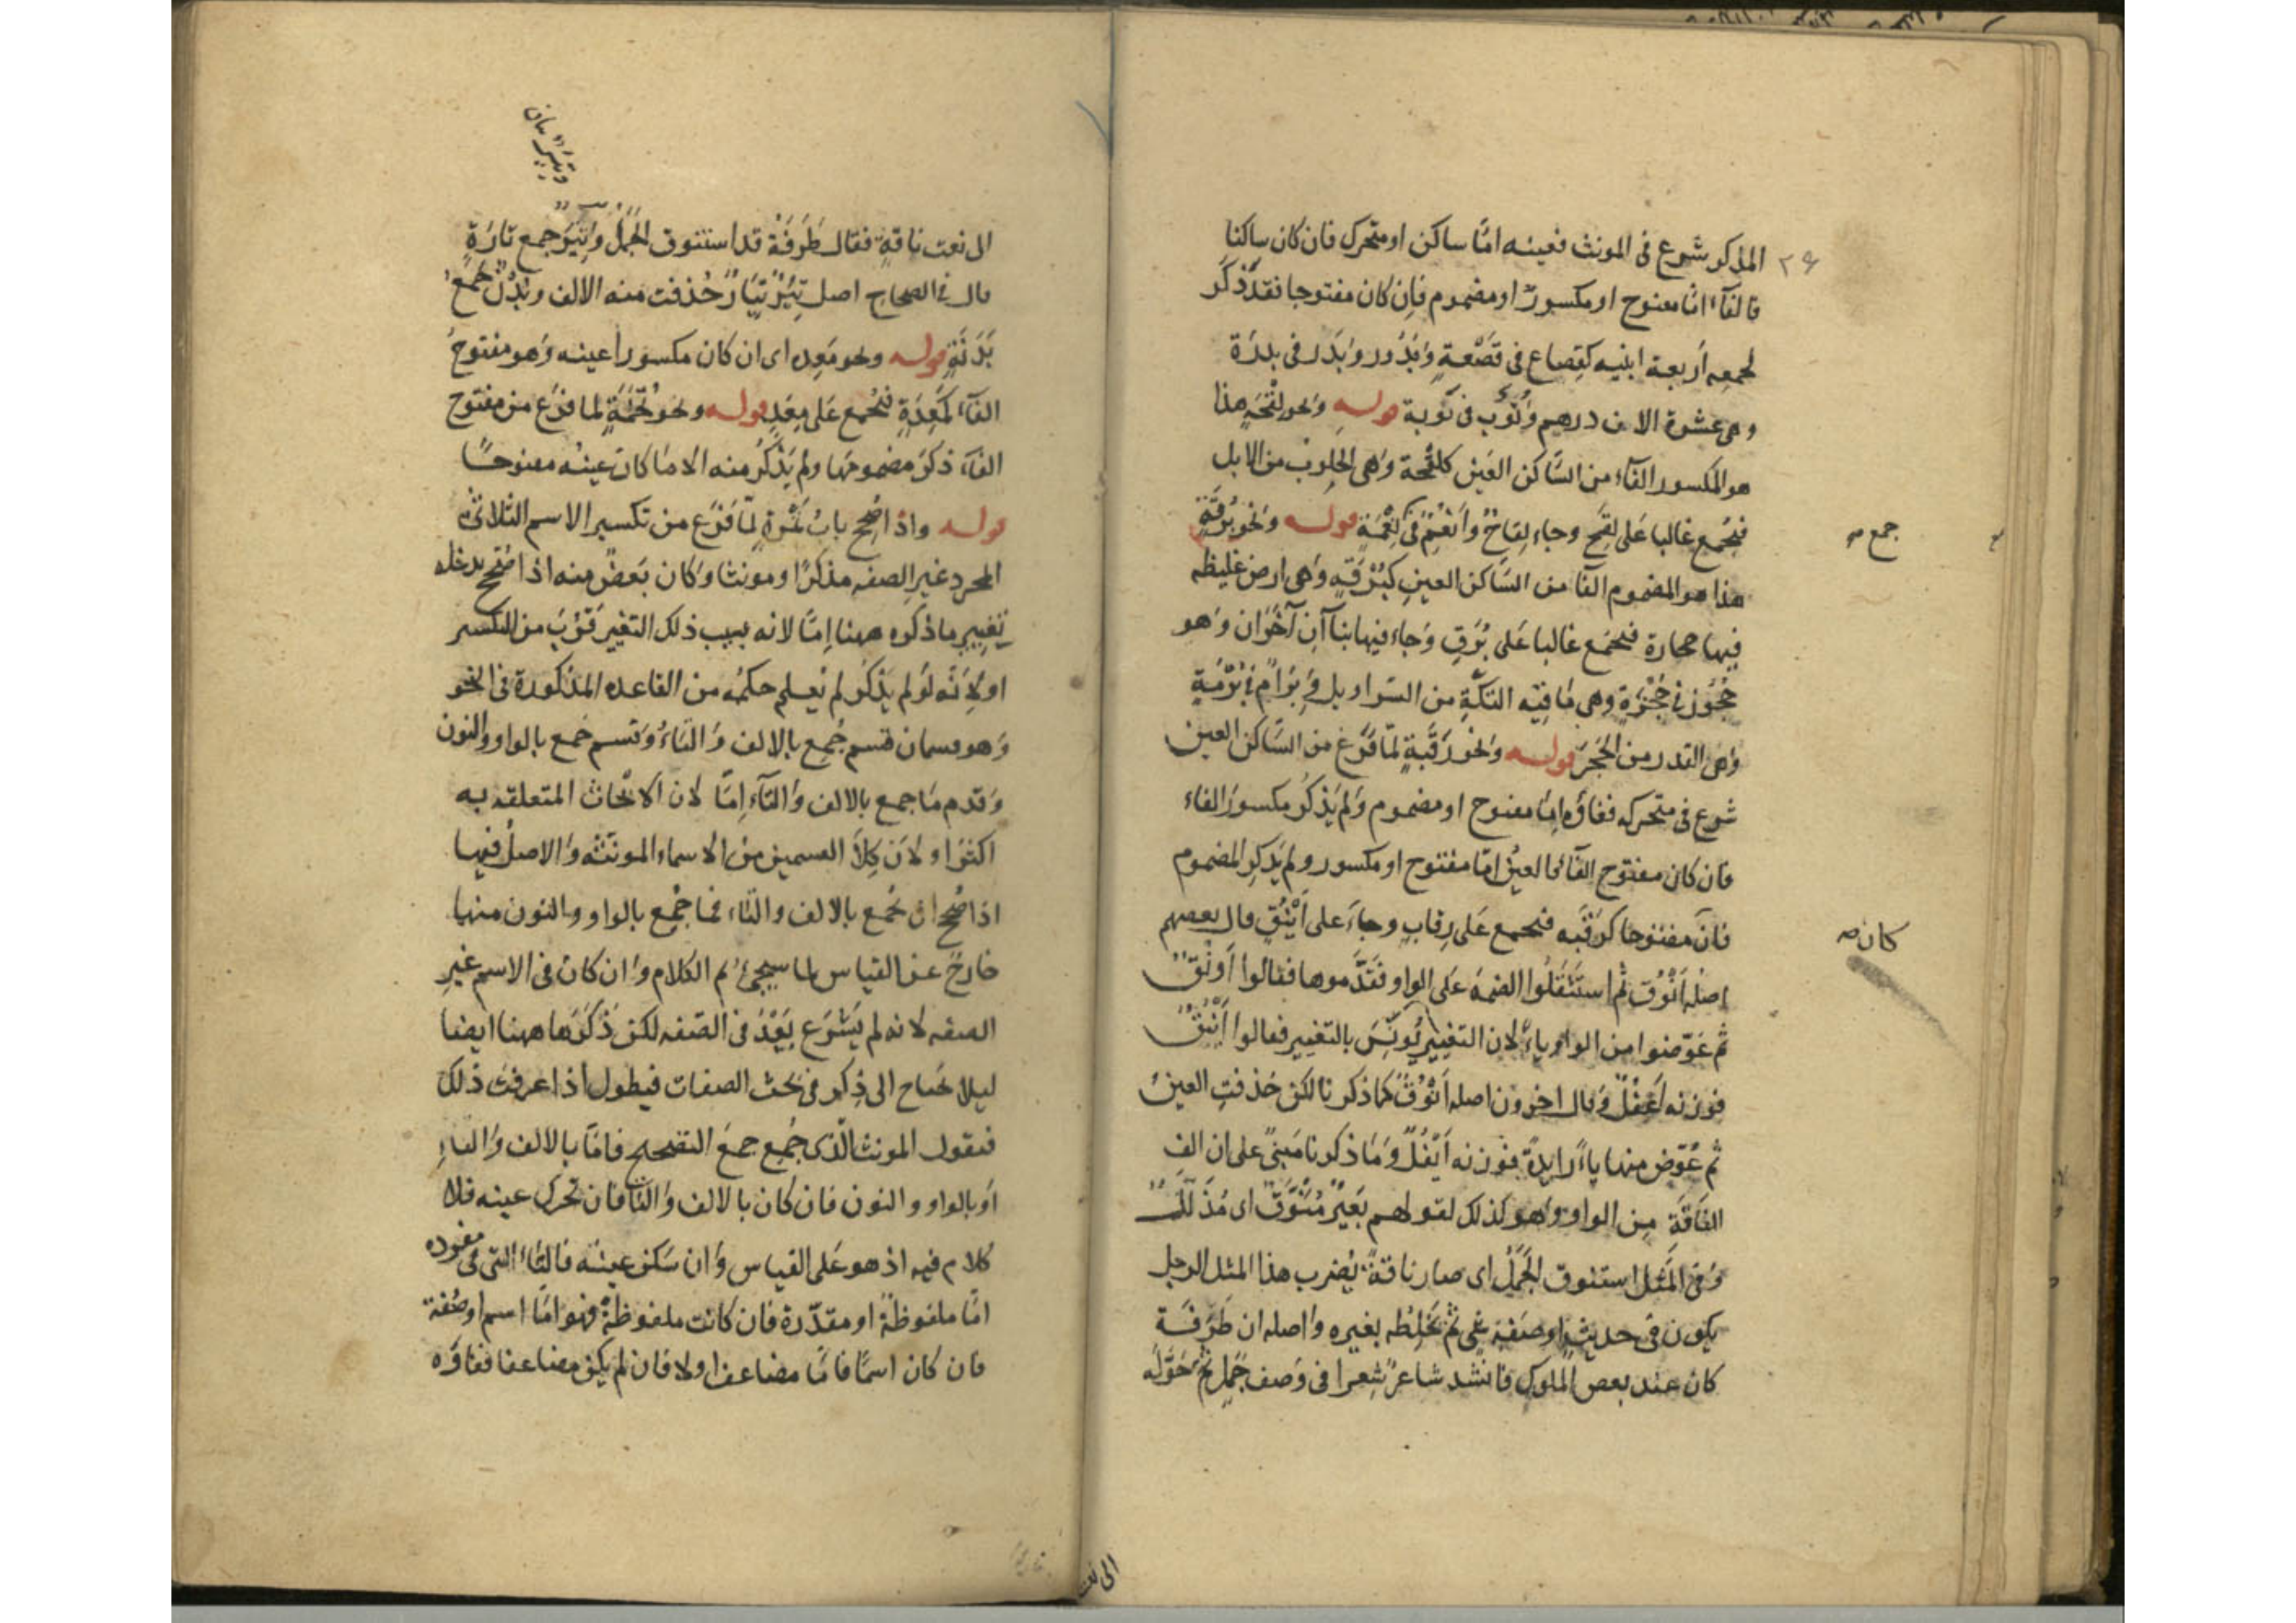 المذكر شرع فى المونث فعينه امّا ساكن او متحرك فان كان ساكنا
فالفآء امّا مفتوح او مكسور او مضموم فان كان مفتوحا فقد ذكر
لجمعه أربعة ابنيه كقِصاع فى قَصْعةٍ وَبُدُور وَبِدَر فى بدرة
وهى عشرة الاف درهم وَنُوَب فى نَوبة قوله ونحو لقْحَه هذا
هو المكسور الفآء من السَّاكن العَين كلقْحة وَهى الحلوب من الابل
فيُجمع غالبا عَلى لِقَحٍ وجاء لِقاحٌ وأَنْعُمٌ فى نِعْمَةٍ قوله ونحو بُرقَةٍ
جمع صح
هذا هو المضموم الفآ من السَّاكن العين كبُرْقَةٍ وَهى ارض غليظه
فيها حجارة فيجمع غالبا عَلى بُرَقٍ وَجاء فيها بنآآن آخَرَان وَهو
حُجُوز فى حُجْزةٍ وهى مَا فيه التكّة من السّراويل وَبِرَامٌ فى بُرْمَةٍ
وَهى القدر من الحَجَر قوله وَنحو رَقَبةٍ لمّا فرغ من السَّاكن العين
شرع فى متحركه ففاؤه امّا مفتوح او مضموم وَلم يَذْكُر مكسور الفاء
فان كان مفتوح الفآء فالعين امّا مفتوح او مكسور ولم يَذكر المضموم
فان مفتوحا كرَقَبه فيجمع عَلى رِقابٍ وجاءَ على أَيْنُقٍ قال بعضهم
كان صح
اصله أَنْوُق ثم استَثْقَلُوا الضمه عَلى الواو فقَدَّموها فقالوا أَوْنُقٌ
ثم عَوّضوا من الواو ياءً لان التغيير يُونِسُ بالتغيير فقالوا أَيْنُقٌ
فوزنه أَعْفُلٌ وَقال اخرون اصله أَنْوُقٌ كما ذكرنا لكن حُذفت العينُ
ثم عُوّض منها ياءً زايدةً فوزنه أَيْفُلٌ وَمَا ذكرنا مَبنىٌ على ان الف
النَّاقَةِ مِن الواو وَهو كذلك لقولهم بَعيرٌ مُنَوَّقٌ اى مُذَلَّلٌ
وَفى المَثَل استنوق الجَمَلُ اى صار ناقةً يُضرب هذا المثل الرجل
يكون فى حديثٍ او صَفة شىء ثم يَخْلِطُه بغيره وَاصله ان طَرَفَة
كان عند بعض الملوك فانشد شاعرٌ شِعرا فى وَصف جَمَلٍ ثم حَوَّلَه
الى نعت
الى نعت ناقةٍ فقال طَرَفَة قد استنوق الجَمَلُ وَتِيَر جمع تَارَةٍ
قال فى الصحاح اصل تِيَرٌ تِيَارٌ حُذفت منه الالف وَبُدْن جمع
بَدَنَةٍ قوله ونحو مَعِده اى ان كان مكسورا عينه وَهو مفتوح
الفآء كمَعِدَةٍ فيُجمع عَلى مِعَدٍ قوله ونحو تُخَمَةٍ لما فرَغ من مفتوح
الفآء ذكرَ مضمومَها ولم يَذْكُر منه الا مَا كانَ عينُه مفتوحًا
قوله واذا صُحِّح بابُ تَمْرةٍ لمّا فَرَغ من تكسير الاسم الثلاثىّ
المجرد غير الصفه مذكرًا ومونثا وَكان بَعضٌ منه اذا صُحِّح يدخله
تغيير ما ذكره ههنا إمّا لانه بسبب ذلك التغيير قَرُبَ من التكسير
او لأنّه لو لم يذكر لم نعلم حكمُه من القاعده المذكورة فى النحو
وَهو قسمان قسم جُمِع بالالف وَالتاءُ وقسم جُمع بالواو والنون
وَقدم مَا جمع بالالف وَالتآء اِمّا لان الابحاث المتعلقه به
اكثرُ او لانّ كِلاَ القسمين من الاسماء المونثه والاصلُ فيها
اذا صُحّح ان تُجمع بالالف والتاء فما جُمِع بالواو والنون منها
خارج عن القياس لما سيجئ ثم الكلام وَان كان فى الاسم غيرِ
الصفه لانه لم يَشْرَع بَعْدُ فى الصّفه لكن ذكرَها ههنا ايضا
ليلا نحتاج الى ذِكره فى بحث الصفات فيطول اذا عرفت ذلك
فنقول المونث الّذى جُمِع جمعَ التصحيح فامّا بالالف وَالتاءِ
أو بالواو والنون فان كان بالالف وَالتاء فان تحرك عينه فلا
كلام فيه اذ هو عَلى القياس وَان سَكن عينُه فالتّاء التى فى مفرده
امّا ملفوظةً او مقدّرة فان كانت ملفوظةً فهو امّا اسم او صفة
فان كان اسمًا فامّا مضاعف او لا فان لم يكن مضاعفا ففاؤه